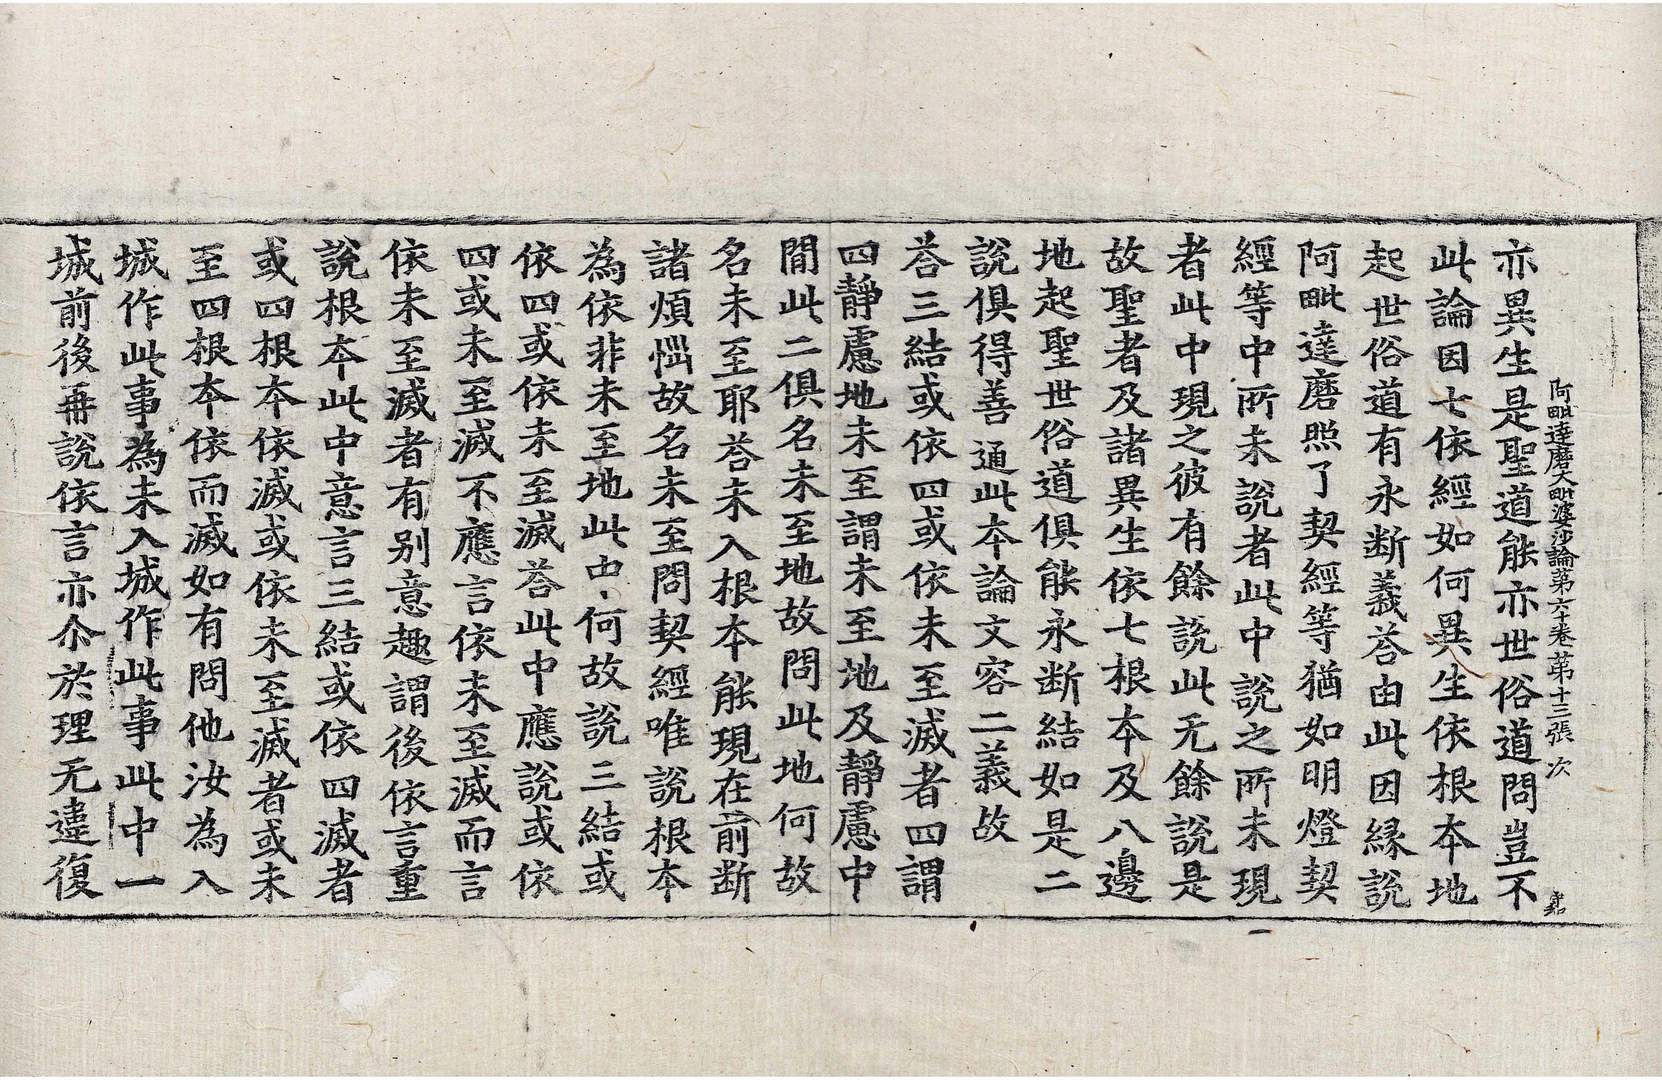 阿毗達磨大毗婆沙論第六十卷第十三張次
亦異生是聖道能亦世俗道問豈不
此論因七依經如何異生依根本地
起世俗道有永斷義荅由此因緣說
阿毗達磨照了契經等猶如明燈契
經等中所未說者此中說之所未現
者此中現之彼有餘說此无餘說是
故聖者及諸異生依七根本及八邊
地起聖世俗道俱能永斷結如是二
說俱得善通此本論文容二義故
荅三結或依四或依未至滅者四謂
四靜慮地未至謂未至地及靜慮中
閒此二俱名未至地故問此地何故
名未至耶荅未入根本能現在前斷
諸煩惱故名未至問契經唯說根本
為依非未至地此中何故說三結或
依四或依未至滅荅此中應說或依
四或未至滅不應言依未至滅而言
依未至滅者有別意趣謂後依言重
說根本此中意言三結或依四滅者
或四根本依滅或依未至滅者或未
至四根本依而滅如有問他汝為入
城作此事為未入城作此事此中一
城前後再說依言亦尒於理无違復